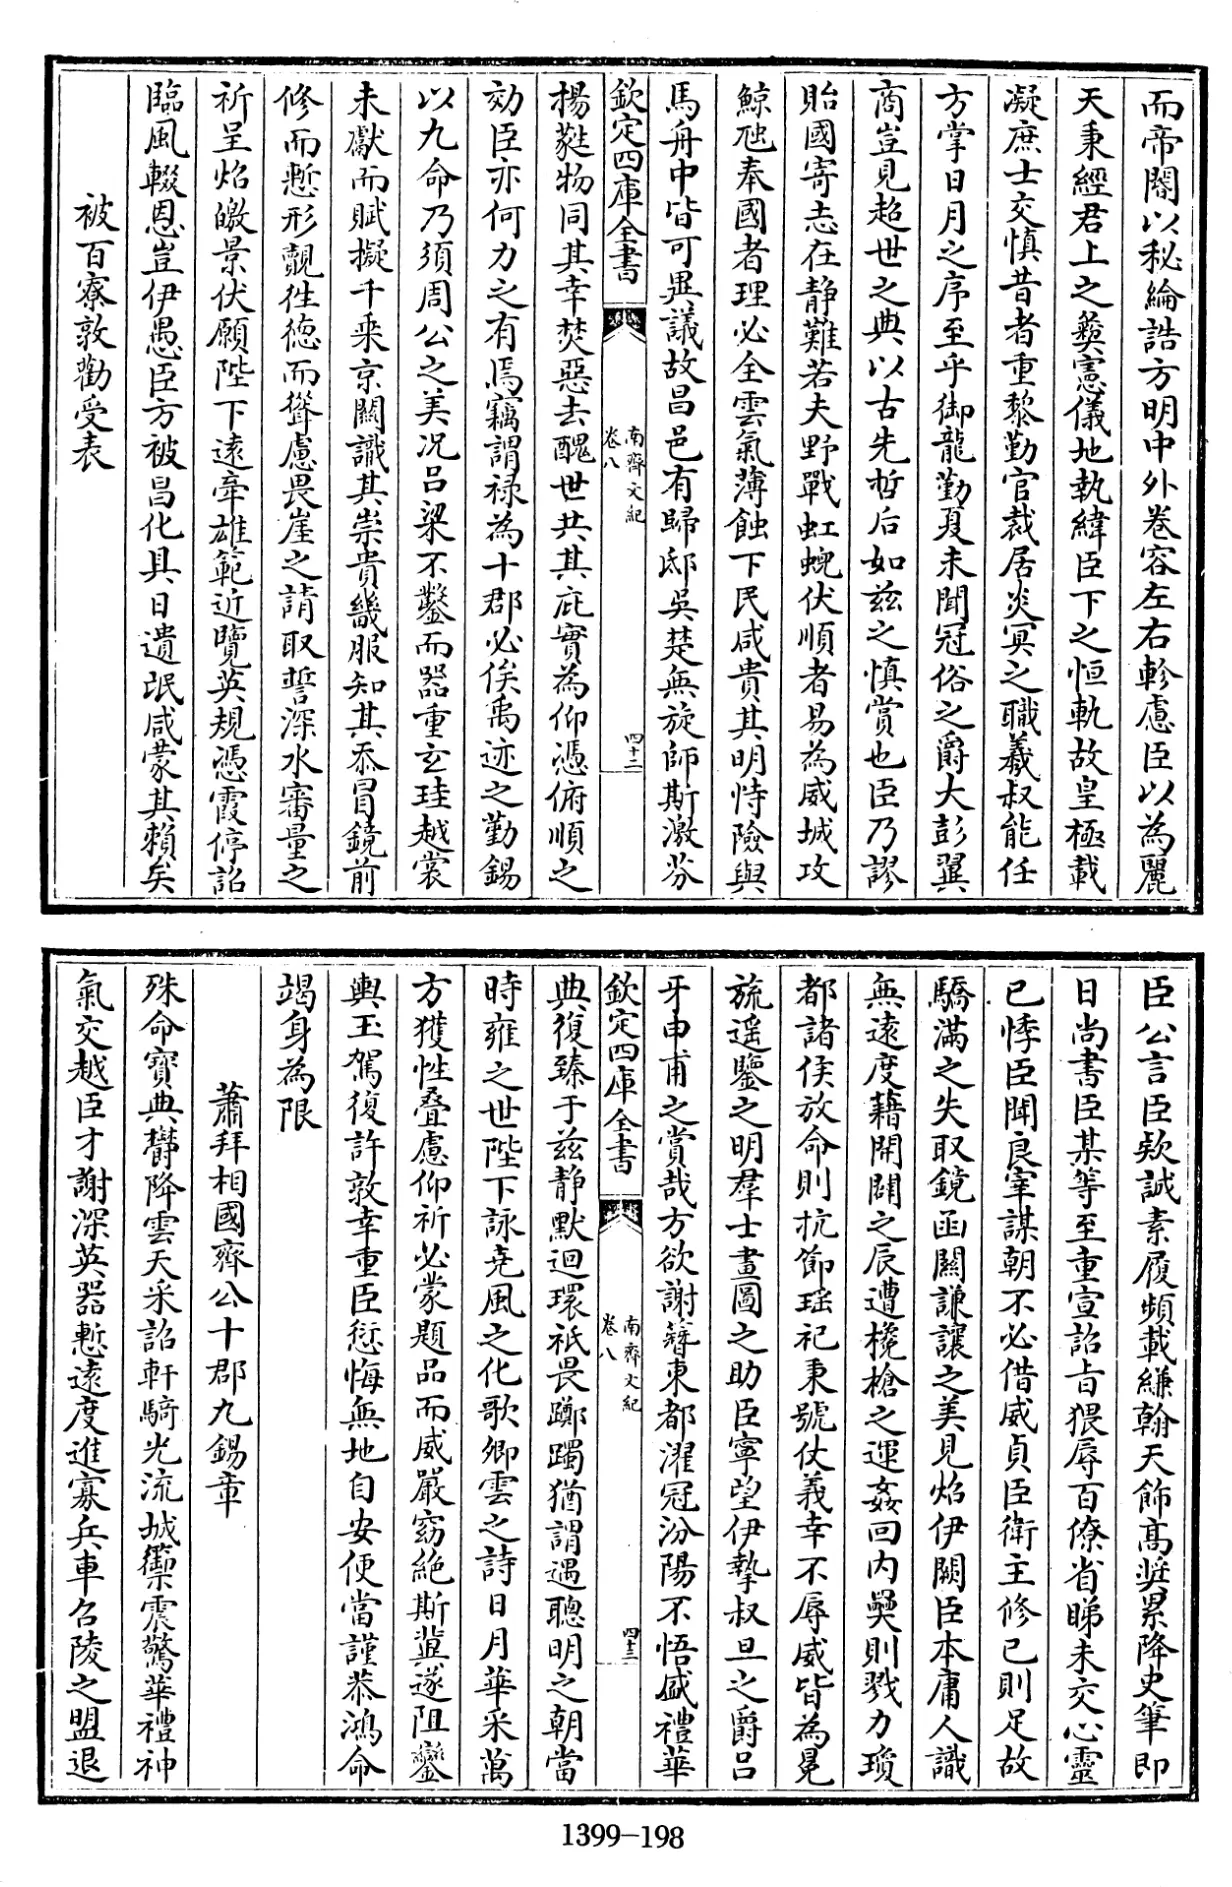 而帝閽以秘綸誥方明中外卷容左右軫慮臣以為麗
天秉經君上之彝憲儀地執緯臣下之恒軌故皇極載
凝庶士交慎昔者重黎勤官裁居炎冥之職羲叔能任
方掌日月之序至乎御龍勤夏未聞冠俗之爵大彭翼
商豈見超世之典以古先哲后如兹之慎賞也臣乃謬
貽國寄志在靜難若夫野戰虹蜺伏順者易為威城攻
鯨虺奉國者理必全雲氣薄蝕下民咸貴其明恃險與
馬舟中皆可異議故昌邑有歸邸吳楚無旋師斯激芬
欽定四庫全書
南齊文紀
卷八
四十二
揚蕤物同其幸焚惡去醜世共其庇實為仰憑俯順之
効臣亦何力之有焉竊謂禄為十郡必俟禹迹之勤錫
以九命乃須周公之美况吕梁不鑿而器重玄珪越裳
未獻而賦擬千乘京闕識其崇貴畿服知其忝冒鏡前
修而慙形覿徃德而聳慮畏崖之請取誓深水審量之
祈呈炤皦景伏願陛下遠牽雄範近覽英規憑霞停詔
臨風輟恩豈伊愚臣方被昌化具日遺氓咸蒙其賴矣
被百寮敦勸受表
臣公言臣欵誠素履頻載縑翰天飾髙奨累降史筆即
日尚書臣某等至重宣詔旨猥辱百僚省睇未交心靈
已悸臣聞良宰謀朝不必借威貞臣衛主修己則足故
驕滿之失取鏡函關謙讓之美見炤伊闕臣本庸人識
無遠度藉開闢之辰遭欃槍之運姦回内奰則戮力瓊
都諸侯放命則抗節瑶祀秉號仗義幸不辱威皆為冕
旒遥鑒之明羣士畫圖之助臣寧望伊摯叔旦之爵吕
牙申甫之賞哉方欲謝簪東都濯冠汾陽不悟盛禮華
欽定四庫全書
南齊文紀
卷八
四十三
典復臻于兹靜默迴環祇畏躑躅猶謂遇聰明之朝當
時雍之世陛下詠堯風之化歌卿雲之詩日月華采萬
方獲性疊慮仰祈必蒙題品而威嚴窈絶斯冀遂阻鑾
輿玉駕復許敦幸重臣愆悔無地自安便當謹恭鴻命
竭身為限
蕭拜相國齊公十郡九錫章
殊命寶典欝降雲天采詔軒騎光流城籞震驚華禮神
氣交越臣才謝深英器慙遠度進寡兵車召陵之盟退
1399-198